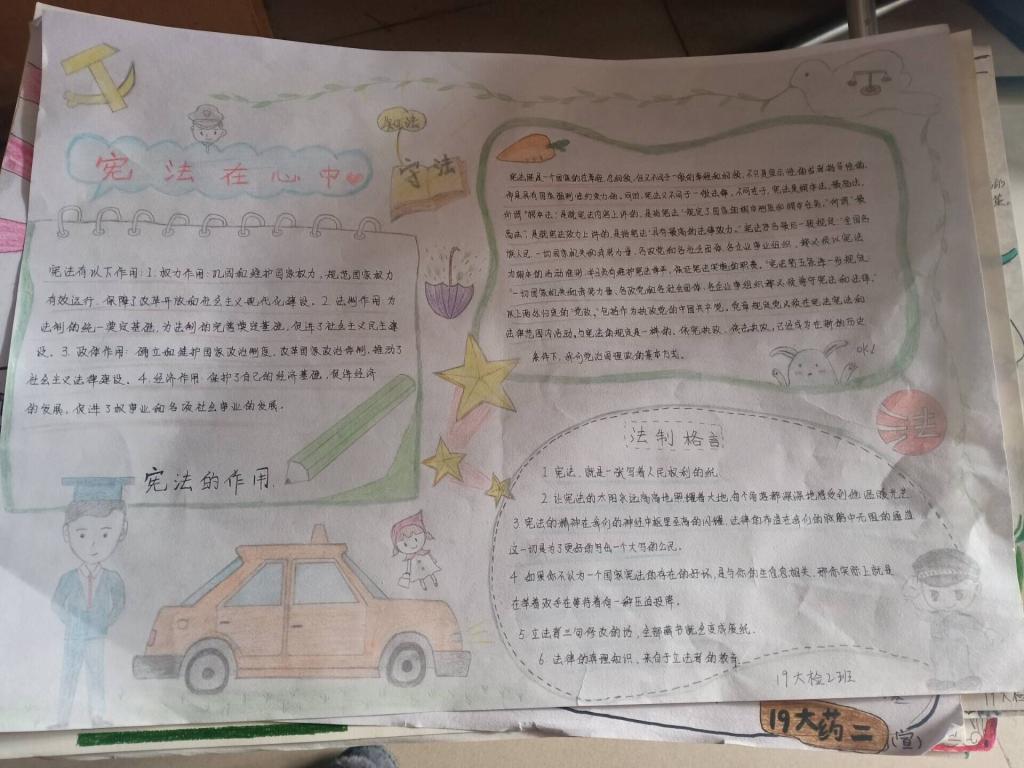 宪法在心中
学法
守法
宪法有以下作用:1.权力作用:巩固和维护国家权力,规范国家权力
有效运行,保障了改革开放和社会主义现代化建设。2.法制作用:为
法制的统一奠定基础,为法制的完善奠定基础,促进了社会主义民主建
设。3.政体作用:确立和维护国家政治制度,改革国家政治体制,推动了
社会主义法律建设。4.经济作用:保护了自己的经济基础,促进经济
的发展,促进了权事业和各项社会事业的发展。
宪法的作用.
宪法既是一个国家的总章程、总纲领,但又不同于一般的章程和纲领,不只是显示性的
而是具有国家强制性约束力的。同时,宪法又不同于一般法律,不同在于,宪法是根本法、最高法。
所谓"根本法",是就宪法内容上讲的,是指宪法"规定了国家的根本制度和根本任务。"所谓"最
高法",是就宪法效力上讲的,是指宪法"具有最高的法律效力。"宪法序言最后一段规定:"全国各
族人民、一切国家机关和武装力量、各政党和各社会团体、各企业事业组织,都必须以宪法
为根本的活动准则,并且负有维护宪法尊严、保证宪法实施的职责。"宪法第五条进一步规定:
"一切国家机关和武装力量、各政党和各社会团体、各企业事业组织都必须遵守宪法和法律。"
以上两处归定的"党政",包括作为执政党的中国共产党。党章规定党必须在宪法宪法和
法律范围内活动,与宪法的规定是一样的。依宪执政、依法执政,已经成为在新的历史
条件下,我们党治国理政的基本方式。
OK!
法
法制格言
1.宪法,就是一张写着人民权利的纸。
2.让宪法的太阳永远高高地照耀着大地,每个角落都深深地感受到他温暖光芒
3.宪法的精神在我们的神经中枢里至高的闪耀,法律的布道在我们的脉胳中无阻的通道
这一切是为了更好的写似一个大写的公民。
4.如果你不认为一个国家宪法的存在的好坏,是与你的生危息相关,那你实际上就是
在举着双手在等待着每一种压迫投降。
5.立法者三句修改的话,全部藏书就会变成废纸.
6.法律的真理知识,来自于立法者的教育.
19大检2班
19大药二
(宣)